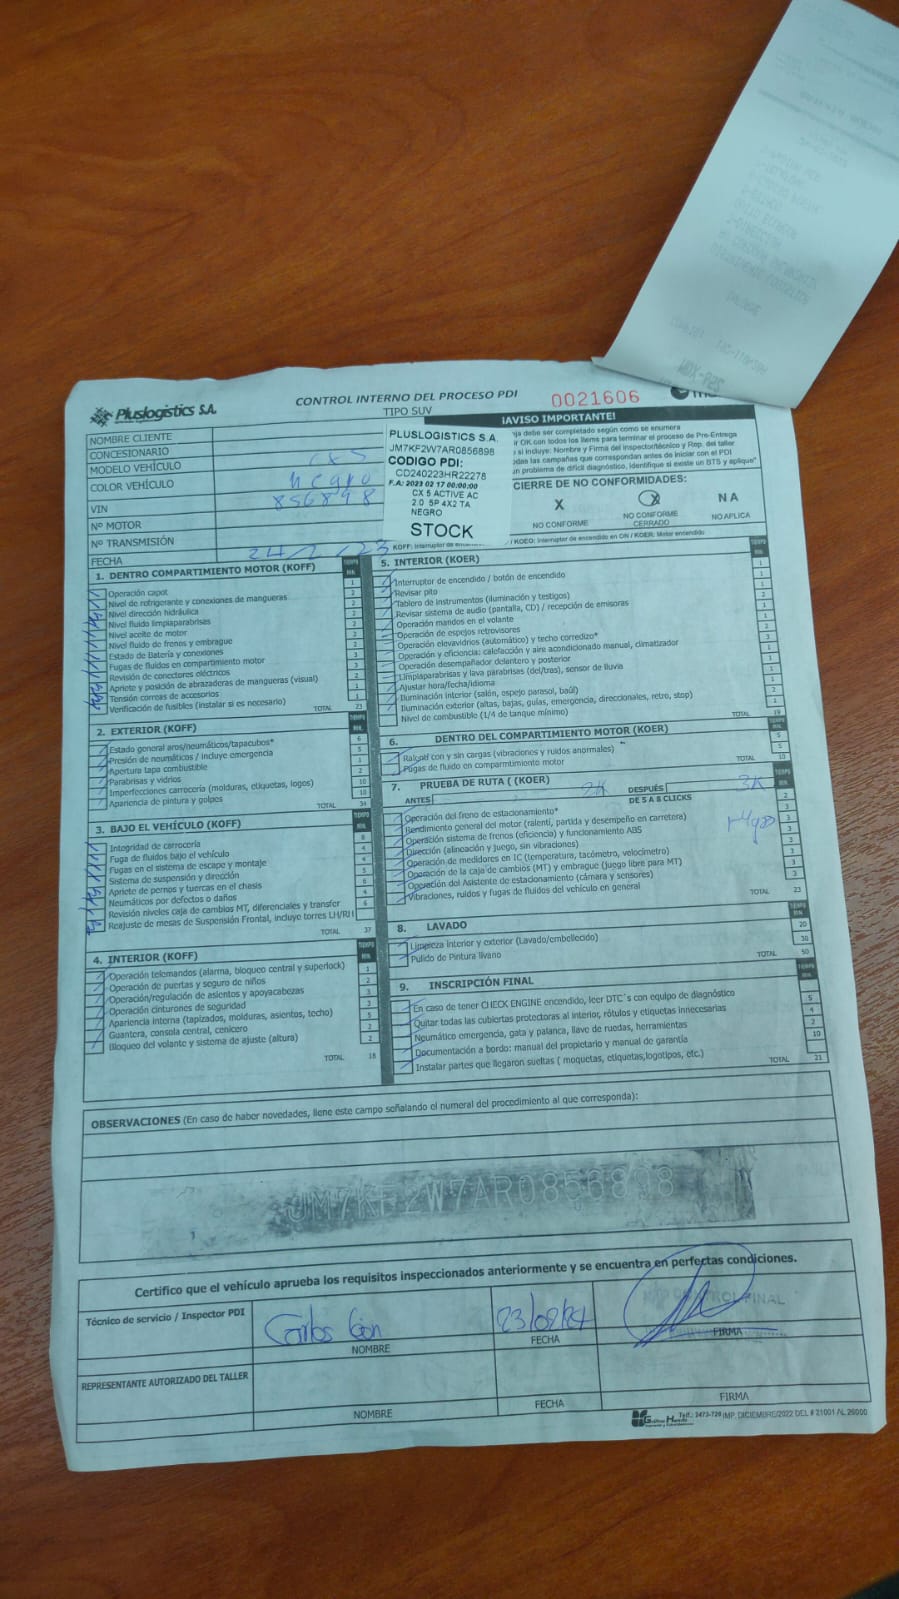 Pluslogistics S.A.
CONTROL INTERNO DEL PROCESO PDI
0021606
TIPO SUV
NOMBRE CLIENTE
CONCESIONARIO
MODELO VEHÍCULO
COLOR VEHÍCULO negro
VIN 856898
Nº MOTOR
Nº TRANSMISIÓN
FECHA
PLUSLOGISTICS S.A.
JM7KF2W7AR0856898
CODIGO PDI:
CD240223HR22278
F.A: 2023 02 17 00:00:00
CX 5 ACTIVE AC
2.0 5P 4X2 TA
NEGRO
STOCK
¡AVISO IMPORTANTE!
ja debe ser completado según como se enumera
r OK con todos los ítems para terminar el proceso de Pre-Entrega
si Incluye: Nombre y Firma del Inspector/técnico y Rep. del taller
das las campañas que correspondan antes de iniciar con el PDI
un problema de difícil diagnóstico, identifique si existe un BTS y aplique"
CIERRE DE NO CONFORMIDADES:
X X N A
NO CONFORME NO CONFORME CERRADO NO APLICA
KOFF: Interruptor de / KOEO: Interruptor de encendido en ON / KOER: Motor encendido
1. DENTRO COMPARTIMIENTO MOTOR (KOFF) TIEMPO MIN.
Operación capot 1
Nivel de refrigerante y conexiones de mangueras 2
Nivel dirección hidráulica 2
Nivel fluido limpiaparabrisas 2
Nivel aceite de motor 2
Nivel fluido de frenos y embrague 2
Estado de Batería y conexiones 3
Fugas de fluidos en compartimiento motor 3
Revisión de conectores eléctricos 2
Apriete y posición de abrazaderas de mangueras (visual) 1
Tensión correas de accesorios 1
Verificación de fusibles (instalar si es necesario)
TOTAL 23
2. EXTERIOR (KOFF) TIEMPO MIN.
Estado general aros/neumáticos/tapacubos* 6
Presión de neumáticos / incluye emergencia 5
Apertura tapa combustible 1
Parabrisas y vidrios 2
Imperfecciones carrocería (molduras, etiquetas, logos) 10
Apariencia de pintura y golpes 10
TOTAL 34
3. BAJO EL VEHÍCULO (KOFF) TIEMPO MIN.
Integridad de carrocería 8
Fuga de fluidos bajo el vehículo 4
Fugas en el sistema de escape y montaje 4
Sistema de suspensión y dirección 5
Apriete de pernos y tuercas en el chasis 6
Neumáticos por defectos o daños 4
Revisión niveles caja de cambios MT, diferenciales y transfer 6
Reajuste de mesas de Suspensión Frontal, incluye torres LH/RH
TOTAL 37
4. INTERIOR (KOFF) TIEMPO MIN.
Operación telemandos (alarma, bloqueo central y superlock) 1
Operación de puertas y seguro de niños 2
Operación/regulación de asientos y apoyacabezas 3
Operación cinturones de seguridad 3
Apariencia interna (tapizados, molduras, asientos, techo) 5
Guantera, consola central, cenicero 2
Bloqueo del volante y sistema de ajuste (altura) 2
TOTAL 18
5. INTERIOR (KOER) TIEMPO MIN.
Interruptor de encendido / botón de encendido 1
Revisar pito 1
Tablero de instrumentos (iluminación y testigos) 2
Revisar sistema de audio (pantalla, CD) / recepción de emisoras
Operación mandos en el volante
Operación de espejos retrovisores
Operación elevavidrios (automático) y techo corredizo*
Operación y eficiencia: calefacción y aire acondicionado manual, climatizador
Operación desempañador delantero y posterior
Limpiaparabrisas y lava parabrisas (del/tras), sensor de lluvia
Ajustar hora/fecha/idioma
Iluminación interior (salón, espejo parasol, baúl)
Iluminación exterior (altas, bajas, guías, emergencia, direccionales, retro, stop)
Nivel de combustible (1/4 de tanque mínimo)
TOTAL 19
6. DENTRO DEL COMPARTIMIENTO MOTOR (KOER) TIEMPO MIN.
Ralentí con y sin cargas (vibraciones y ruidos anormales) 5
Fugas de fluido en compartimiento motor 5
TOTAL 10
7. PRUEBA DE RUTA ( (KOER) TIEMPO MIN.
ANTES 2K DESPUÉS 3K
DE 5 A 8 CLICKS
Operación del freno de estacionamiento* 2
Rendimiento general del motor (ralentí, partida y desempeño en carretera) 3
Operación sistema de frenos (eficiencia) y funcionamiento ABS 3
Dirección (alineación y juego, sin vibraciones) 3
Operación de medidores en IC (temperatura, tacómetro, velocímetro) 3
Operación de la caja de cambios (MT) y embrague (juego libre para MT) 3
Operación del Asistente de estacionamiento (cámara y sensores) 3
Vibraciones, ruidos y fugas de fluidos del vehículo en general 3
TOTAL 23
8. LAVADO TIEMPO MIN.
Limpieza interior y exterior (Lavado/embellecido) 20
Pulido de Pintura liviano 30
TOTAL 50
9. INSCRIPCIÓN FINAL TIEMPO MIN.
En caso de tener CHECK ENGINE encendido, leer DTC´s con equipo de diagnóstico
Quitar todas las cubiertas protectoras al interior, rótulos y etiquetas innecesarias 5
Neumático emergencia, gata y palanca, llave de ruedas, herramientas 4
Documentación a bordo: manual del propietario y manual de garantía 2
Instalar partes que llegaron sueltas ( moquetas, etiquetas,logotipos, etc.) 10
TOTAL 21
OBSERVACIONES (En caso de haber novedades, llene este campo señalando el numeral del procedimiento al que corresponda):
JM7KF2W7AR0856898
Certifico que el vehículo aprueba los requisitos inspeccionados anteriormente y se encuentra en perfectas condiciones.
Técnico de servicio / Inspector PDI
Carlos
NOMBRE
FECHA
CONTROL FINAL
FIRMA
REPRESENTANTE AUTORIZADO DEL TALLER
NOMBRE
FECHA
FIRMA
Telf.: 2473-726 IMP. DICIEMBRE/2022 DEL # 21001 AL 26000